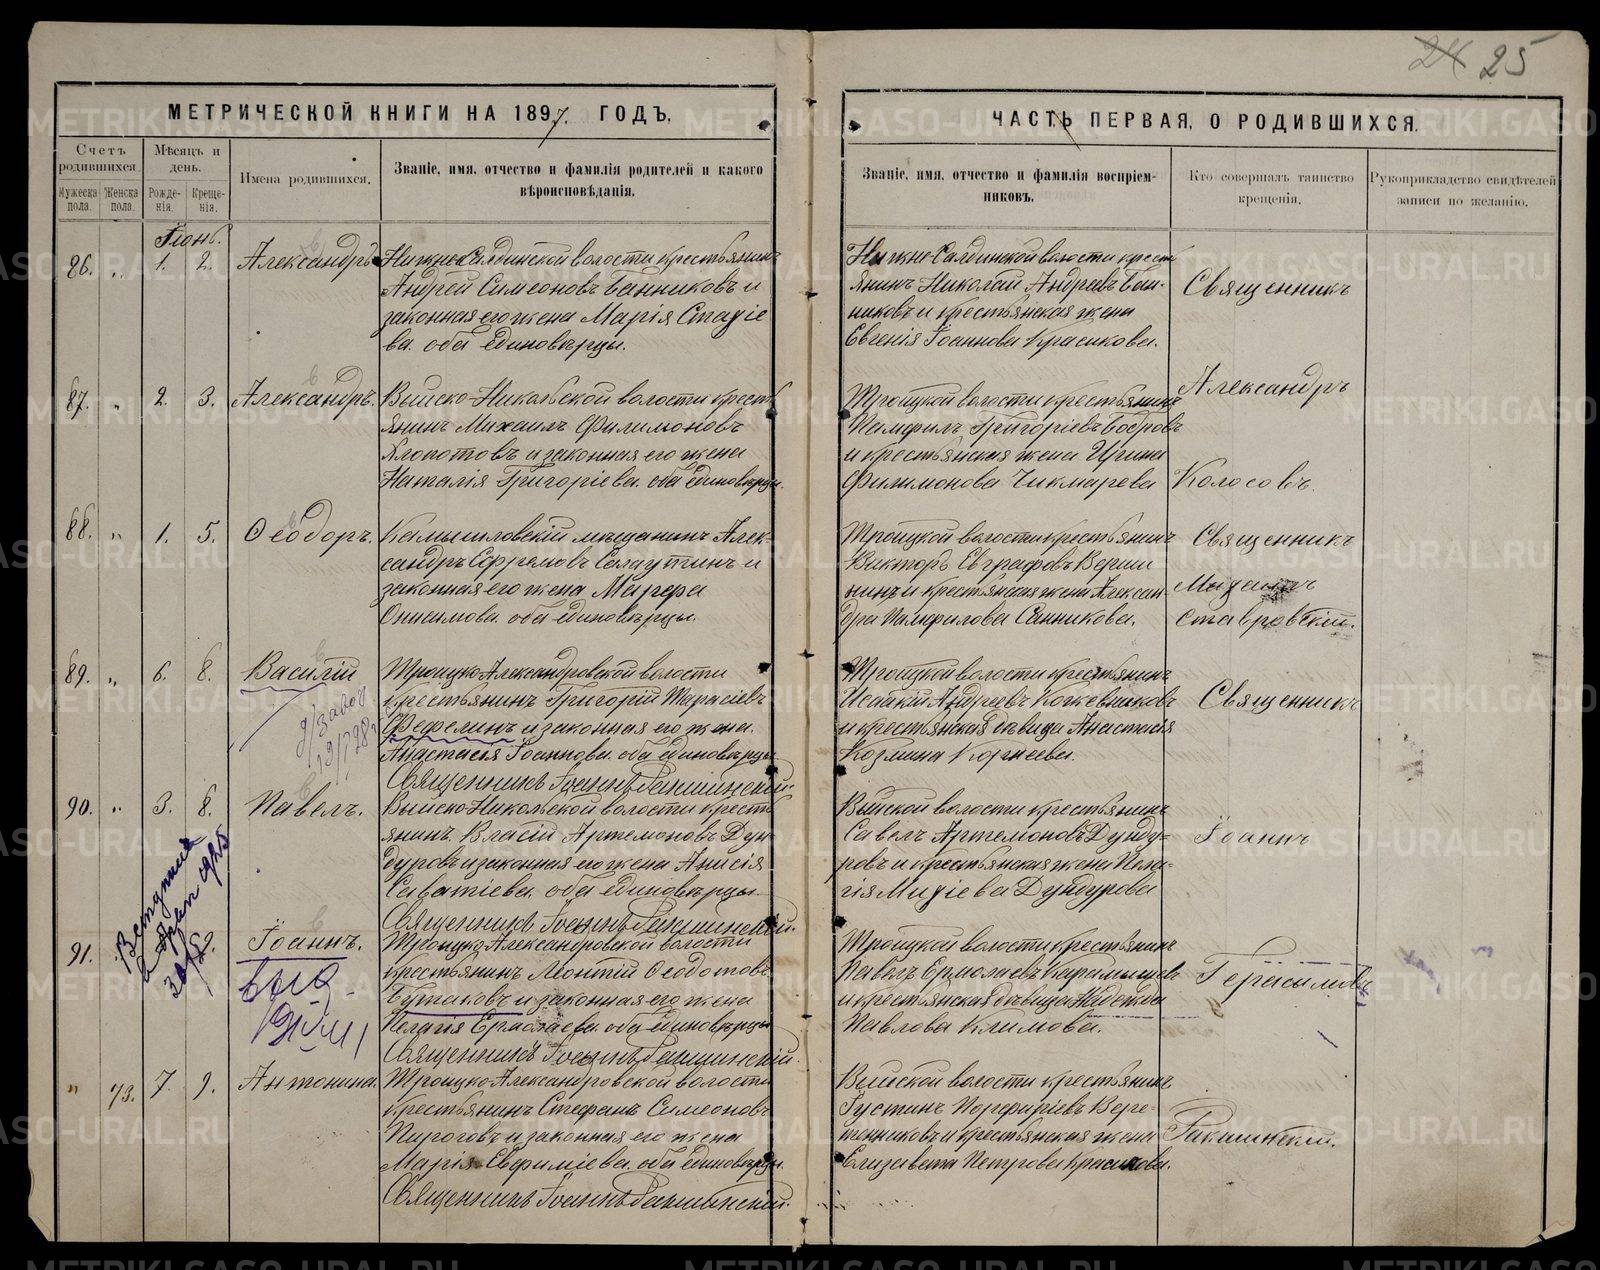 24 25
МЕТРИЧЕСКОЙ КНИГИ НА 1897. ГОДЪ,
ЧАСТЬ ПЕРВАЯ, О РОДИВШИХСЯ.
Счетъ родившихся.
Мѣсяцъ и день.
Мужеска пола.
Женска пола.
Рожденія.
Крещенія.
Имена родившихся.
Званіе, имя, отчество и фамилія родителей и какого
вѣроисповѣданія.
Званіе, имя, отчество и фамилія воспріем-
никовъ.
Кто совершалъ таинство
крещенія.
Рукоприкладство свидѣтелей
записи по желанію.
Іюнь.
86. " 1. 2. Александръ
Нижне-Салдинской волости крестьянинъ
Андрей Симеоновъ Банниковъ и
законная его жена Марія
ва. оба единовѣрцы.
Нижне-Салдинской волости крестъ
янинъ Николай Андреевъ Бан-
никовъ и крестьянская жена
Евгенія Іоаннова Красикова.
Священникъ
87. " 2. 3. Александръ.
Выйско-Никольской волости кресть
янинъ Михаилъ Филимоновъ
Хлопотовъ и законная его жена
Наталія Григоріева. оба единовѣрцы.
Троицкой волости крестьянинъ
Памфилъ Григоріевъ Бобровъ
и крестьянская жена Ирина
Филимонова Чикмарева
Александръ
Колосовъ.
88. " 1. 5. Ѳеодоръ.
Камышловскій мѣщанинъ Алек-
сандръ Ефремовъ и
законная его жена Марфа
Онисимова. оба единовѣрцы.
Троицкой волости крестьянинъ
Викторъ Евграфовъ Верши
нинъ и крестьянская жена Алексан-
дра Памфилова Санникова.
Священникъ
Ставровскій.
89. " 6. 8. Василій
Троицко-Александровской волости
крестьянинъ Григорій Тарасіевъ
Фефелинъ и законная его жена
Анастасія Іоаннова. оба единовѣрцы
Священникъ Іоаннъ
Троицкой волости крестьянинъ
Исаакій Андреевъ Кожевниковъ
и крестьянская дѣвица Анастасія
Козмина Корнеева.
Священникъ
90. " 3. 8. Павелъ.
Выйско-Никольской волости кресть
янинъ Власій Артемоновъ Дун
дуровъ и законная его жена Анисія
Саватіева. оба единовѣрцы.
Священникъ Іоаннъ
Выйской волости крестьянинъ
Савелъ Артемоновъ Дунду-
ровъ и крестьянская жена Пела-
гія Дундурова
Іоаннъ
91. Іоаннъ.
Троицко-Александровской волости
крестьянинъ Леонтій Ѳеодотовъ
Бутаковъ и законная его жена
Пелагія Ермолаева. оба единовѣрцы
Священникъ Іоаннъ
Троицкой волости крестьянинъ
Павелъ Ермолаевъ Карамышевъ
и крестьянская дѣвица Надежда
Павлова Климова.
Герасимовъ
" 73. 7. 9. Антонина.
Троицко-Александровской волости
крестьянинъ Стефанъ Симеоновъ
Пироговъ и законная его жена
Марія Евфиміева. оба единовѣрцы.
Священникъ Іоаннъ
Выйской волости крестьянинъ
Густинъ Порфиріевъ Вере-
тенниковъ и крестьянская жена
Елизавета Петрова Красикова.
METRIKI.GASO-URAL.RU